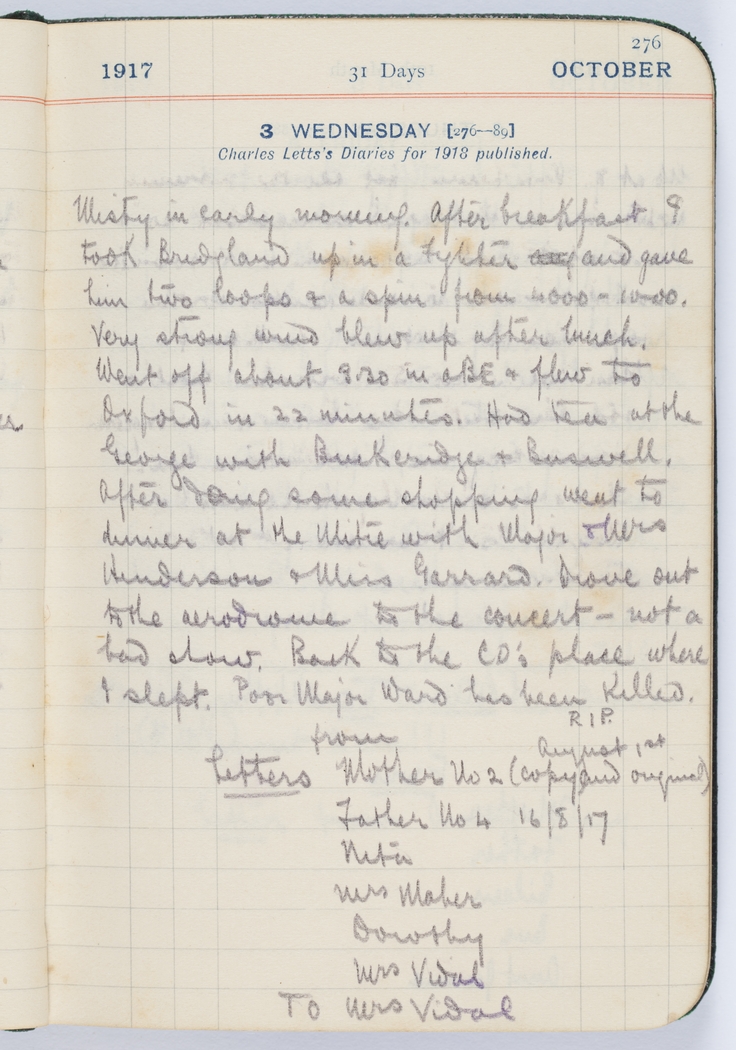 276
1917 31 Days OCTOBER
3 WEDNESDAY [276—89]
Charles Letts's Diaries for 1918 published.
Misty in early morning. After breakfast I
took Bridgland up in a fighter and gave
him two loops & a spin from 4000 - 1000.
Very strong wind blew up after lunch.
Went off about 3.30 in a BE & flew to
Oxford in 22 minutes. Had tea at the
George with Buckeridge & Buswell.
After doing some shopping went to
dinner at the Mitre with Major & Mrs
Henderson & Miss Garrard. Drove out
to the aerodrome to the concert - not a
bad show. Back to the CO's place where
I slept. Poor Major Ward has been killed.
R I P.
from August 1st
Letters Mother No 2 (copy and original)
Father No 4 16/8/17
Neta
Mrs Maher
Dorothy
Mrs Vidal
To Mrs Vidal